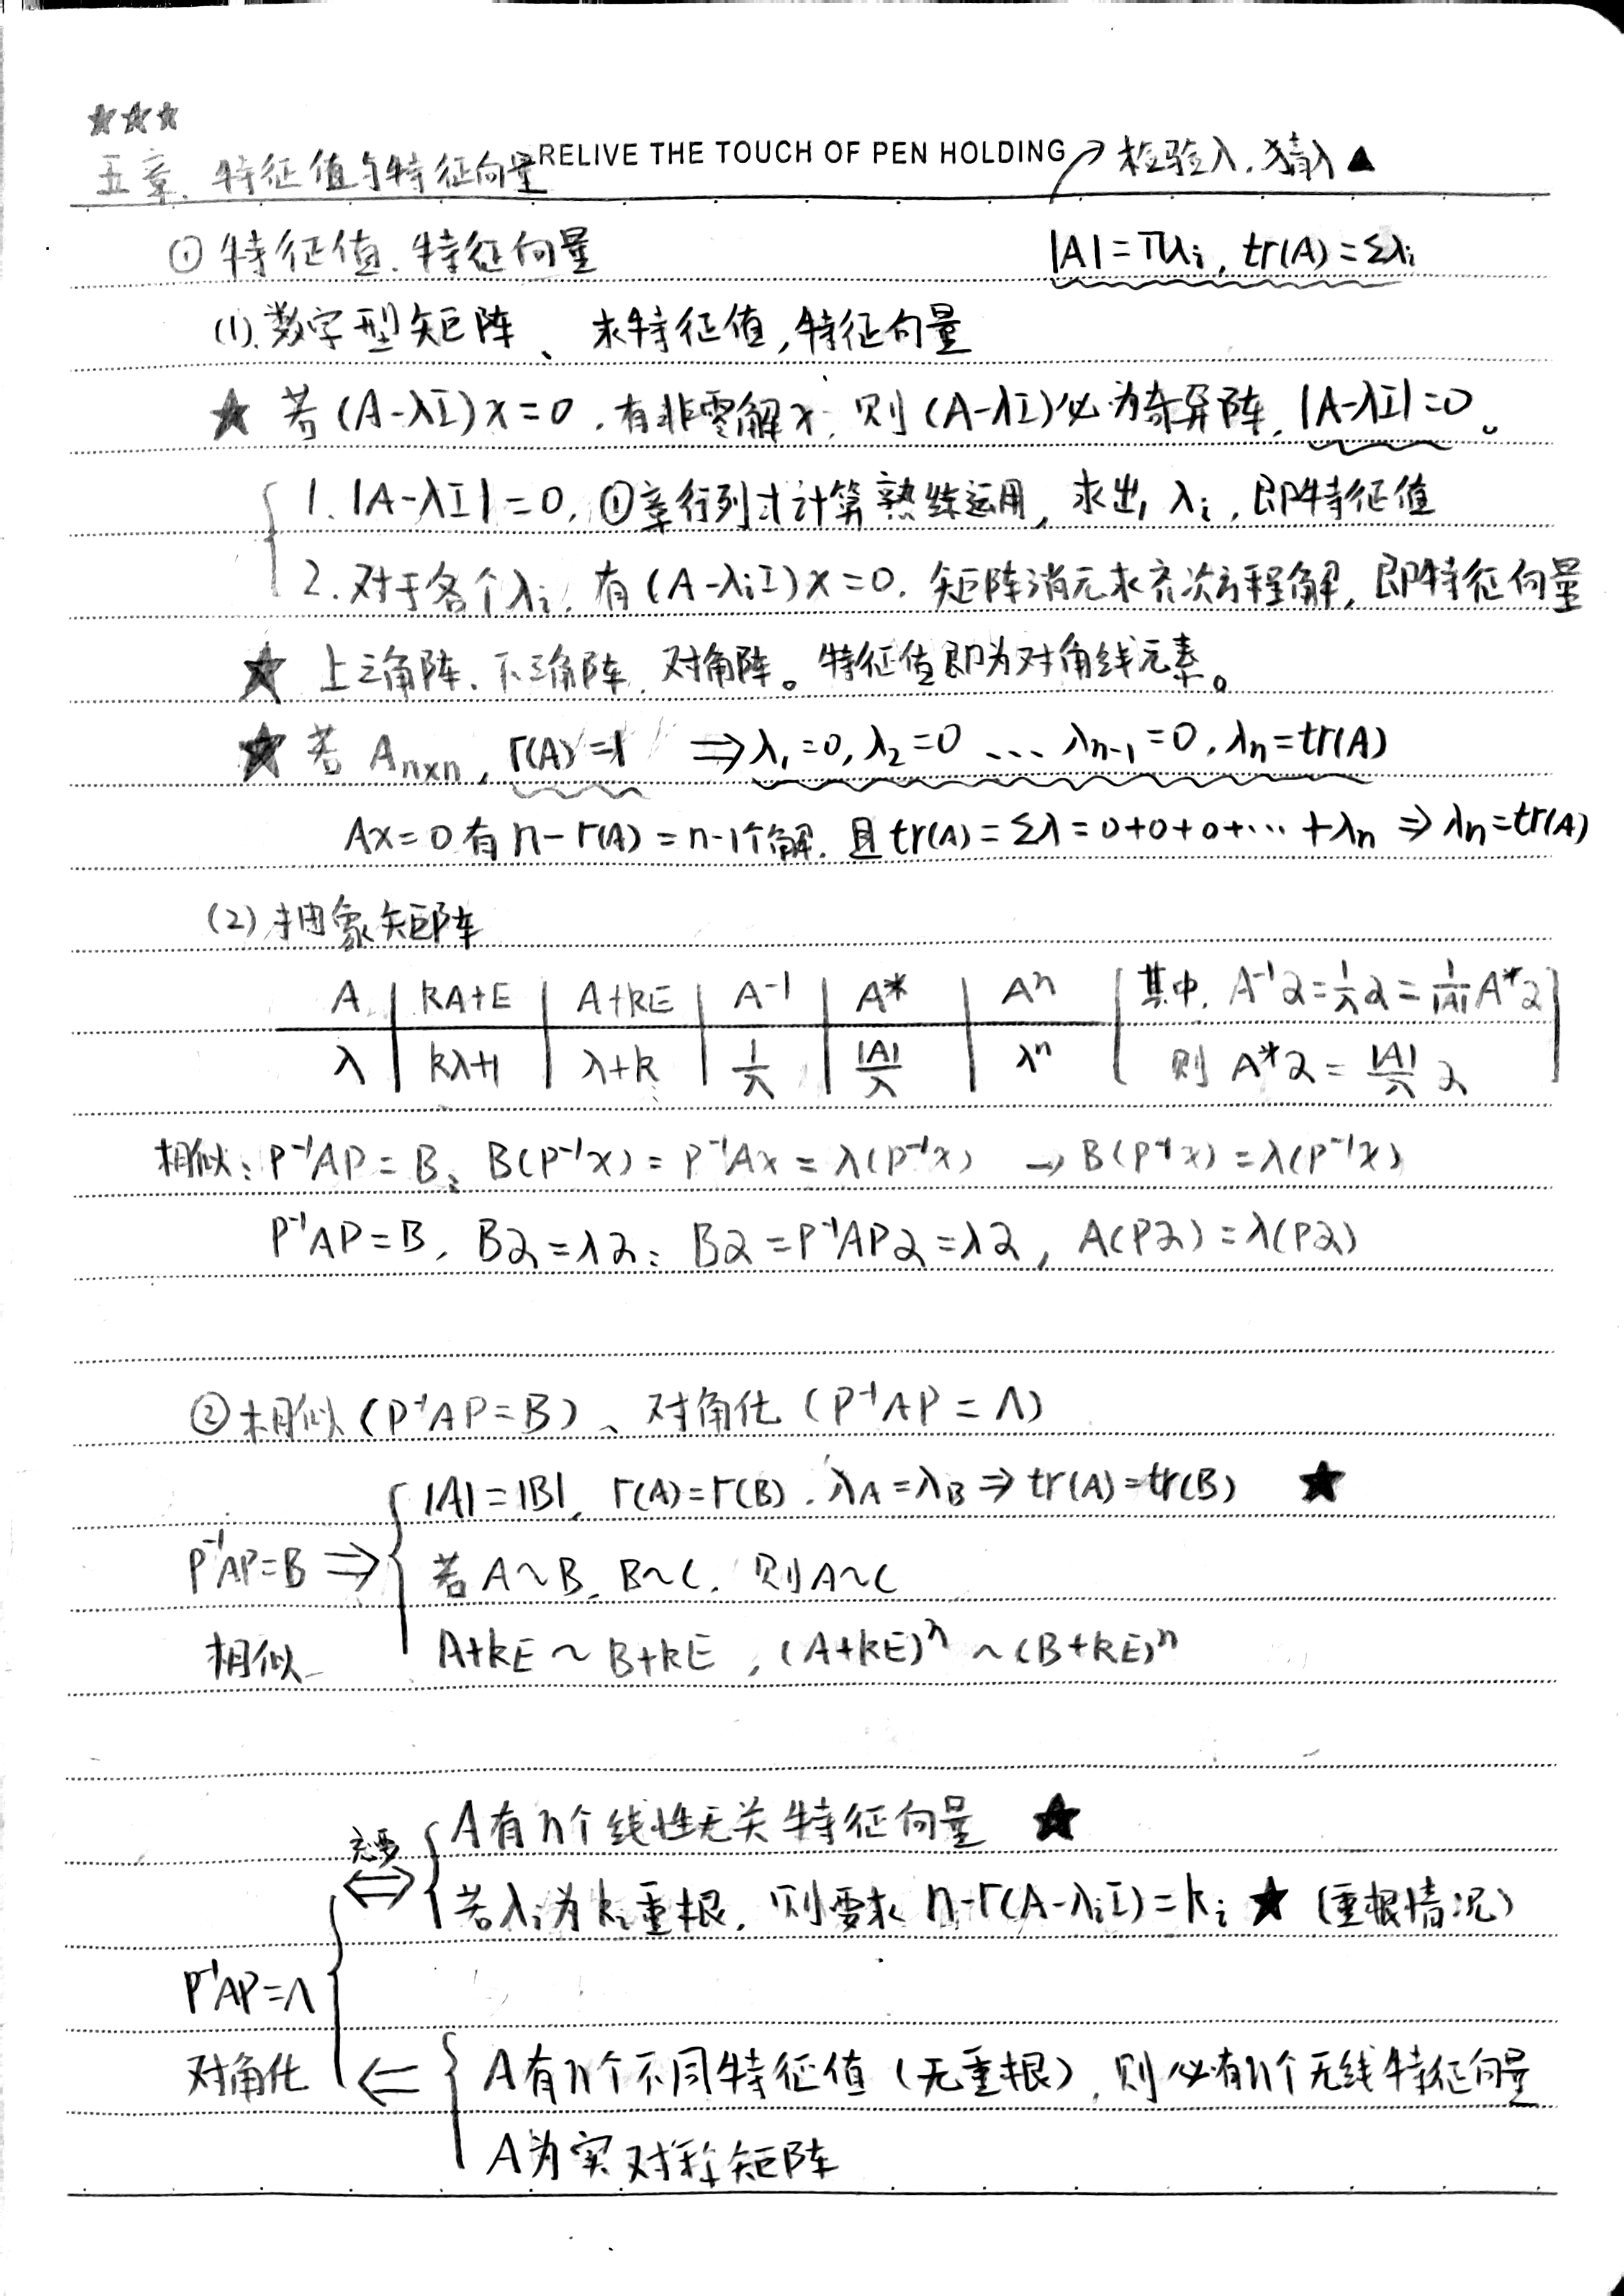 ★★★
五章. 特征值与特征向量 RELIVE THE TOUCH OF PEN HOLDING ↗ 检验λ. 猜λ ▲
① 特征值. 特征向量 |A|=Πλi, tr(A)=Σλi
(1). 数字型矩阵、求特征值, 特征向量
★ 若(A-λI)x=0. 有非零解x, 则(A-λI)必为奇异阵, |A-λI|=0。
1. |A-λI|=0, ①章行列式计算熟练运用, 求出 λi, 即特征值
2. 对于各个λi, 有(A-λiI)x=0. 矩阵消元求齐次方程解, 即特征向量
★ 上三角阵、下三角阵, 对角阵。特征值即为对角线元素。
★ 若 An×n, r(A)=1 ⇒ λ1=0, λ2=0 … λn-1=0, λn=tr(A)
Ax=0有n-r(A)=n-1个解. 且tr(A)=Σλ=0+0+0+…+λn ⇒ λn=tr(A)
(2) 抽象矩阵
A | kA+E | A+kE | A⁻¹ | A* | Aⁿ [其中. A⁻¹α=1/λ α=1/|A| A*α]
λ | kλ+1 | λ+k | 1/λ | |A|/λ | λⁿ [则 A*α=|A|/λ α]
相似: P⁻¹AP=B, B(P⁻¹x)=P⁻¹Ax=λ(P⁻¹x) → B(P⁻¹x)=λ(P⁻¹x)
P⁻¹AP=B, Bα=λα: Bα=P⁻¹APα=λα, A(Pα)=λ(Pα)
② 相似(P⁻¹AP=B)、对角化(P⁻¹AP=Λ)
|A|=|B|, r(A)=r(B). λA=λB ⇒ tr(A)=tr(B) ★
P⁻¹AP=B ⇒ 若A~B, B~C. 则A~C
相似 A+kE ~ B+kE, (A+kE)ⁿ ~ (B+kE)ⁿ
A有n个线性无关特征向量 ★
充要 ⇔ 若λi为ki重根, 则要求 n-r(A-λiI)=ki ★ (重根情况)
P⁻¹AP=Λ
对角化 ⇐ A有n个不同特征值(无重根), 则必有n个无线特征向量
A为实对称矩阵